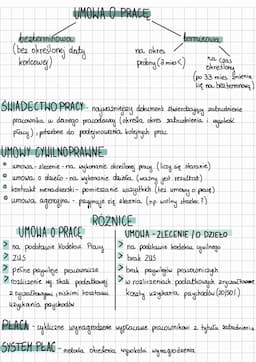 UMOWA O PRACĘ
bezterminowa
(bez określonej daty
końcowej)
terminowa
na okres
próbny (3 mies.)
na czas
określony
(po 33 mies. zmienia
się na bezterminową)
ŚWIADECTWO PRACY - najważniejszy dokument stwierdzający zatrudnienie
pracownika w danego pracodawcy (określa okres zatrudnienia i
pracy), potrzebne do podejmowania kolejnych prac.
UMOWY CYWILNOPRAWNE
umowa - zlecenie - na wykonanie określonej pracy (liczy się staranie)
umowa o dzieło - na wykonanie dzieła (ważny jest rezultat)
kontrakt menadżerski - pomieszanie wszystkich (bez umowy o pracę)
umowa agencyjna - się zlecenia (np.
RÓŻNICE
UMOWA O PRACĘ
> na podstawie Kodeksu Pracy
> ZUS
> pełne przywileje pracownicze
> rozliczenie wg skali podatkowej
z ryczałtowymi, niskimi kosztami
uzyskania przychodów
UMOWA - ZLECENIE / O DZIEŁO
> na podstawie kodeksu cywilnego
> brak ZUS
> brak przywilejów pracowniczych
> w rozliczeniach podatkowych zryczałtowane
koszty uzyskania przychodów (20/50%)
PŁACA - cykliczne wynagrodzenie wypłacane pracownikowi z tytułu zatrudnienia
SYSTEM PŁAC - metoda określania wysokości wynagrodzenia.